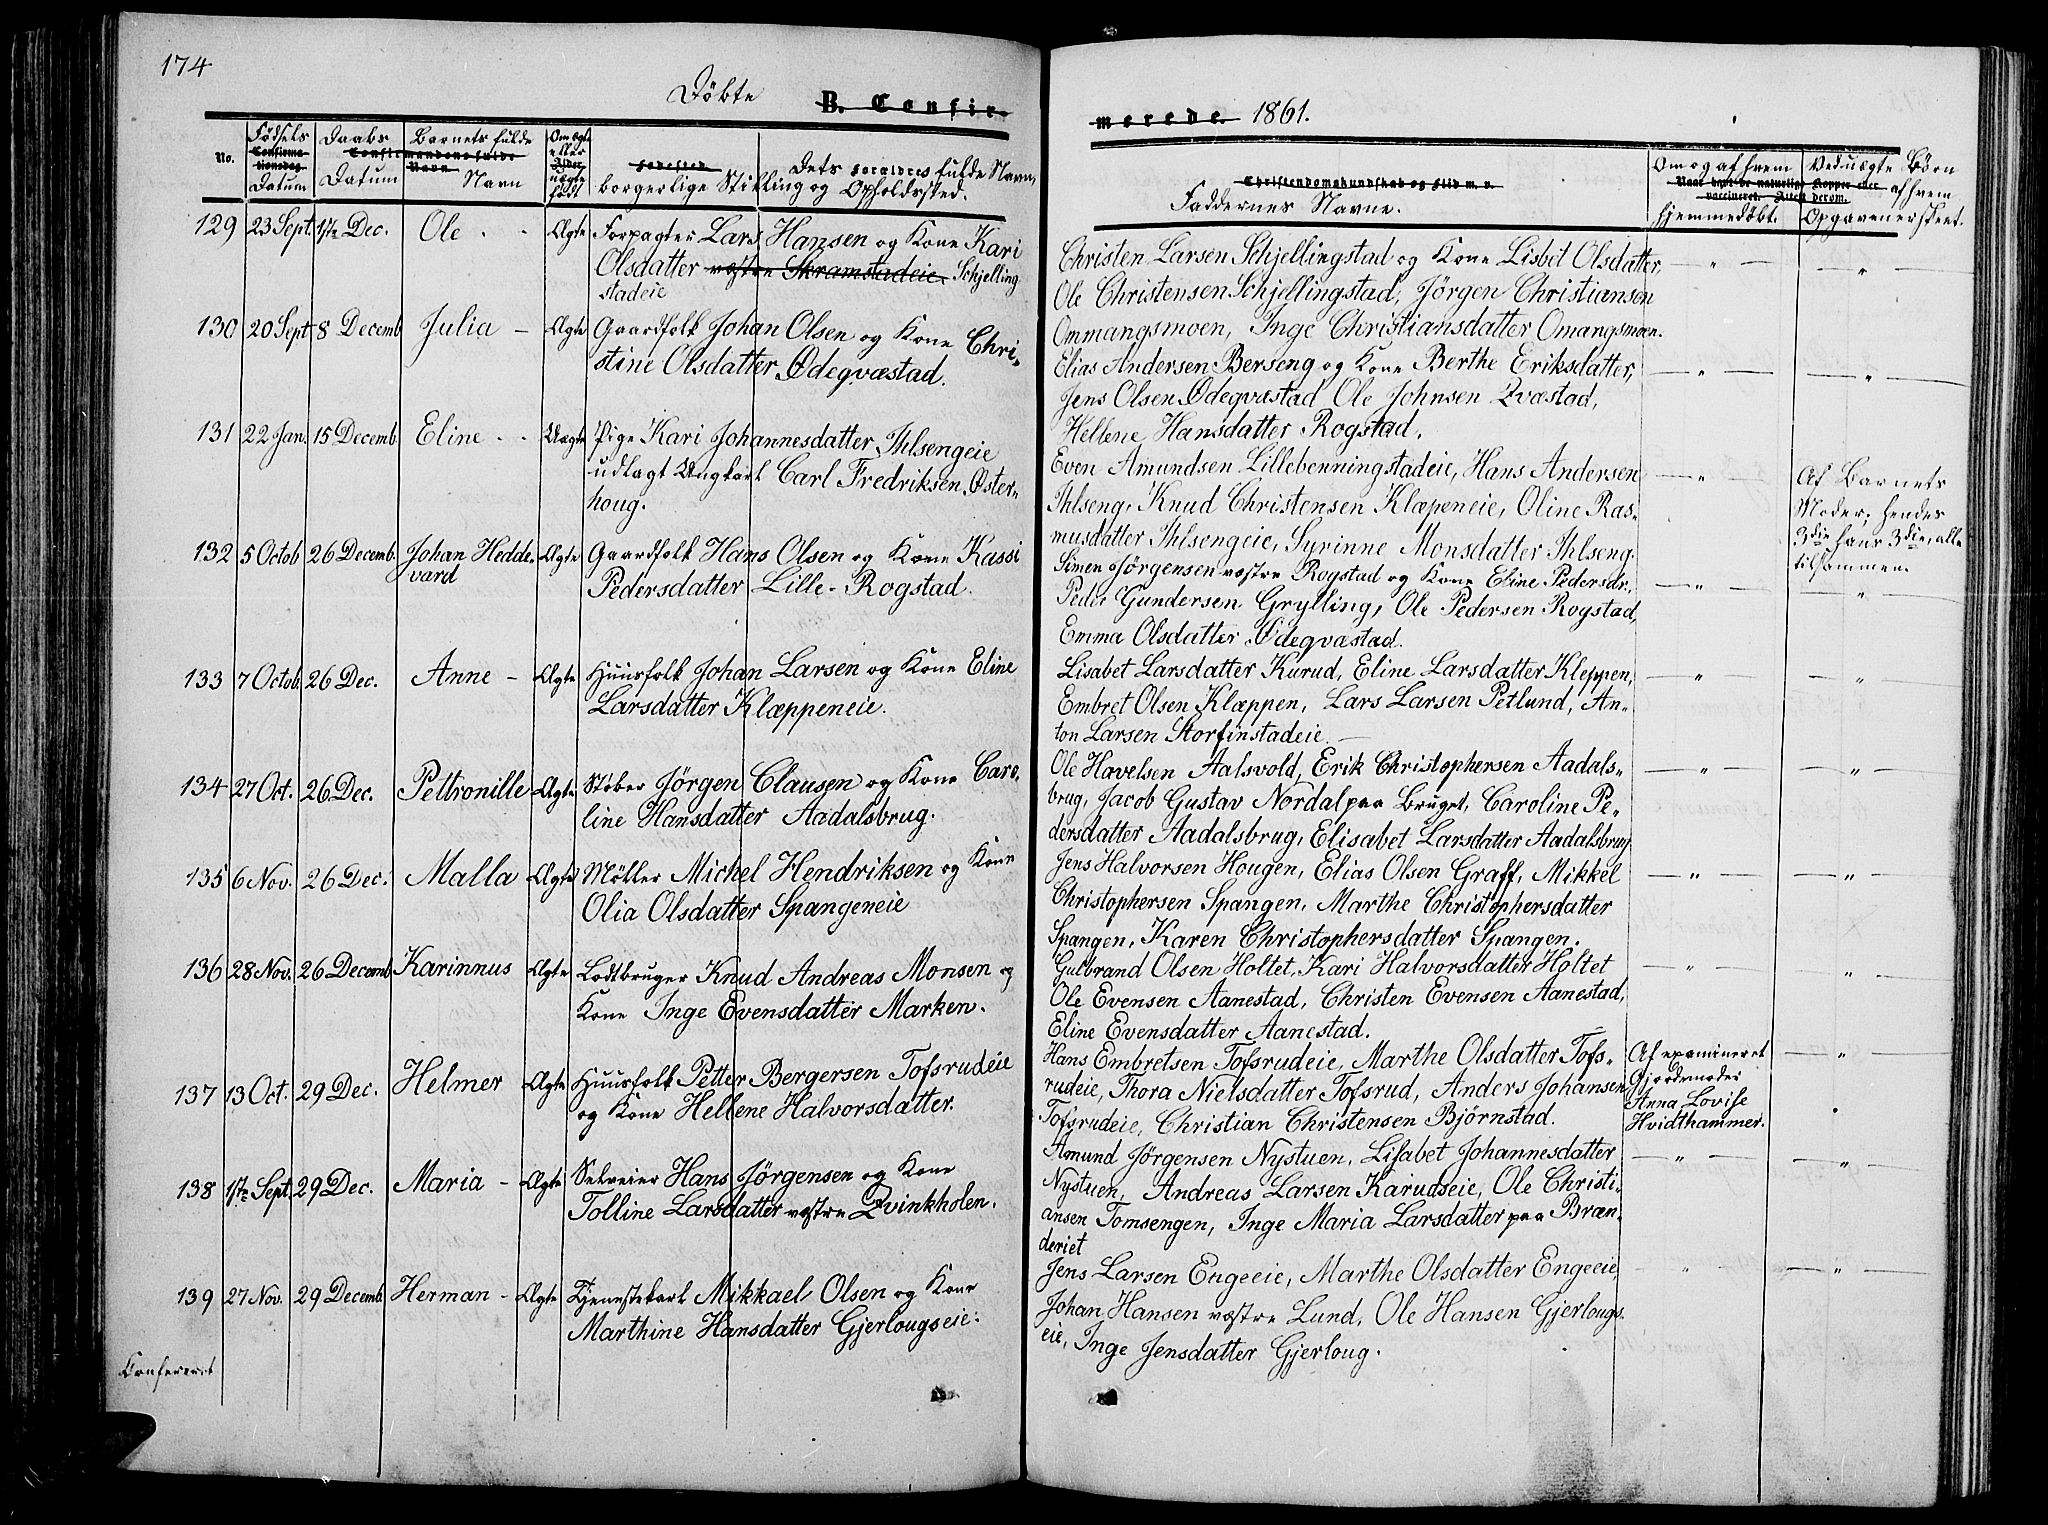 174
Döbte B. Confir-
merede. 1861.
No.
Fødsels
Confirma
tionsdag
Datum
Daabs
Datum
Barnets fulde
Confirmandens fulde
Navn
Navn
Om ægte
eller
Alder
uægte
født
Fødested
Dets Forældres fulde Navn,
borgerlige Stilling og Opholdssted.
Christendomskundskab og Flid m. v.
Faddernes Navne.
Om og af hvem
hjemmedøbt.
Ved uægte Børn
af hvem
Opgaven er skeet.
129 23 Sept. 1ste Dec. Ole - - Ægte Forpagter Lars Hansen og Kone Kari
Olsdatter vestre Skramstadeie Schjelling
stadeie
130 20 Sept 8 Decemb Julia - Ægte Gaardfolk Johan Olsen og Kone Chri-
stine Olsdatter Ødegvæstad.
131 22 Jan. 15 Decemb. Eline - - Uægte Pige Kari Johannesdatter Ihlsengeie
udlagt Ungkarl Carl Fredriksen Øster-
houg.
132 5 Octob 26 Decemb. Johan Hedde- Ægte Gaardfolk Hans Olsen og Kone Kassi
vard Pedersdatter Lille-Rogstad.
133 7 Octob. 26 Dec. Anne - Ægte Huusfolk Johan Larsen og Kone Eline
Larsdatter Klæppeneie.
134 27 Oct. 26 Dec. Pettronille Ægte Støber Jörgen Clausen og Kone Caro-
line Hansdatter Aadalsbrug.
135 6 Nov. 26 Dec. Malla Ægte Møller Michel Hendriksen og Kone
Olia Olsdatter Spangeneie
136 28 Nov. 26 Decemb Karinnus Ægte Lodtbruger Knud Andreas Monsen og
Kone Inge Evensdatter Marken.
137 13 Oct. 29 Dec. Helmer Ægte Huusfolk Petter Bergersen Tofsrudeie
og Kone Hellene Halvorsdatter.
138 1ste Sept. 29 Dec. Maria - Ægte Selveier Hans Jörgensen og Kone
Tolline Larsdatter vestre Qvinkholen.
139 27 Nov. 29 Decemb. Herman - Ægte Tjenestekarl Mikkael Olsen og Kone
Marthine Hansdatter Gjerlougseie.
Confereret
Christen Larsen Schjellingstad og Kone Lisbet Olsdatter, - " - - " -
Ole Christensen Schjellingstad, Jörgen Christiansen
Ommangsmoen, Inge Christiansdatter Omangsmoen.
Elias Andersen Berseng og Kone Berthe Eriksdatter, - " - - " -
Jens Olsen Ødegvæstad Ole Johnsen Qvæstad,
Hellene Hansdatter Rogstad.
Even Amundsen Lillebenningstadeie, Hans Andersen - " - Af Barnets
Ihlseng, Knud Christensen Klæpeneie, Oline Ras- Moder; hendes
musdatter Ihlsengeie, Syrinne Monsdatter Ihlseng. 3die hans 3die, alle
tilsammen.
Simen Jörgensen vestre Rogstad og Kone Eline Pedersdr., - " - - " -
Peder Gundersen Grylling, Ole Pedersen Rogstad,
Emma Olsdatter Ødegvæstad.
Lisabet Larsdatter Kurud, Eline Larsdatter Kleppen, - " - - " -
Embret Olsen Klæppen, Lars Larsen Petlund, An-
ton Larsen Storfinstadeie. -
Ole Havelsen Aalsvold, Erik Christophersen Aadals- - " - - " -
brug, Jacob Gustav Nordal paa Bruget, Caroline Pe-
dersdatter Aadalsbrug, Elisabet Larsdatter Aadalsbrug
Jens Halvorsen Hougen, Elias Olsen Graff, Mikkel - " - - " -
Christophersen Spangen, Marthe Christophersdatter
Spangen, Karen Christophersdatter Spangen.
Gulbrand Olsen Holtet, Kari Halvorsdatter Holtet - " - - " -
Ole Evensen Aanestad, Christen Evensen Aanestad,
Eline Evensdatter Aanestad.
Hans Embretsen Tofsrudeie, Marthe Olsdatter Tofs- Af examineret - " -
rudeie, Thora Nielsdatter Tofsrud, Anders Johansen Gjordemoder
Tofsrudeie, Christian Christensen Björnstad. Anna Lovise
Hvidthammer.
Amund Jörgensen Nystuen, Lisabet Johannesdatter - " - - " -
Nystuen, Andreas Larsen Karudseie, Ole Christi-
ansen Tomsengen, Inge Maria Larsdatter paa Bræn-
deriet
Jens Larsen Engeeie, Marthe Olsdatter Engeeie, - " - - " -
Johan Hansen vestre Lund, Ole Hansen Gjerlougs-
eie, Inge Jensdatter Gjerloug.